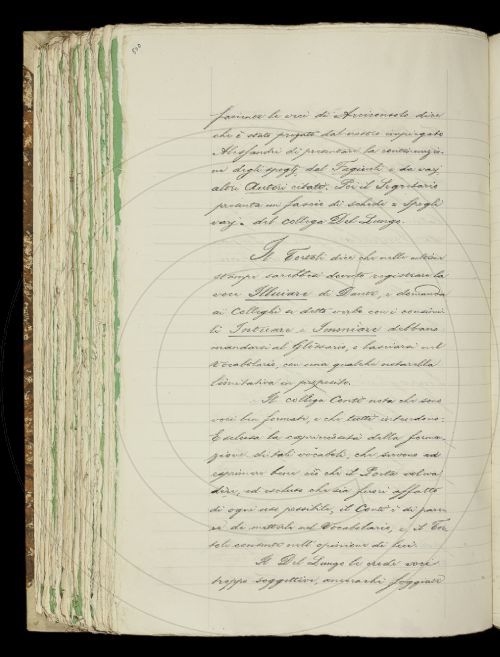 facente le veci di Arciconsolo dice
che è stato pregato dal nostro impiegato
Alessandri di presentare la continuazio-
ne degli spogli dal Fagiuoli e da varj
altri Autori citati. Poi il Segretario
presenta un fascio di schede e spogli
varj del collega Del Lungo.
Il Tortoli dice che nelle ultime
stampe sarebbesi dovuto registrare la
voce Illuiare di Dante, e domanda
ai Colleghi se detto verbo con i consimi-
li Intuare e Immiare debbano
mandarsi al Glossario, o lasciarsi nel
Vocabolario, con una qualche noterella
limitativa in proposito.
Il collega Conti nota che sono
voci ben formate, e che tutti intendono.
Esclusa la capricciosità della forma-
zione di tali vocaboli, che servono ad
esprimere bene ciò che il Poeta voleva
dire, ed escluso che sia fuori affatto
di ogni uso possibile, il Conti è di pare-
re di metterle nel Vocabolario, e il Tor-
toli consente nell'opinione di lui.
Il Del Lungo le crede voci
troppo soggettive, ancorachè foggiate